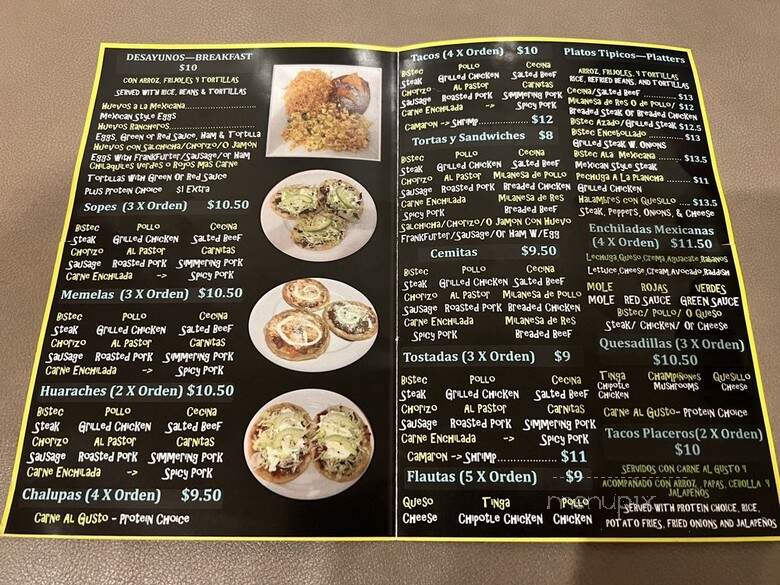 DESAYUNOS—BREAKFAST
$10
CON ARROZ, FRIJOLES Y TORTILLAS
SERVED WITH RICE, BEANS & TORTILLAS
Huevos a la Mexicana
Mexican Style Eggs
Huevos Rancheros
Eggs, Green or Red Sauce, Ham & Tortilla
Huevos con Salchicha/Chorizo/O Jamón
Eggs With Frankfurter/Sausage/or Ham
Chilaquiles Verdes o Rojos Mas Carne
Tortillas With Green or Red Sauce
Plus Protein Choice $1 Extra
Sopes (3 X Orden) $10.50
Bistec Pollo Cecina
Steak Grilled Chicken Salted Beef
Chorizo Al Pastor Carnitas
Sausage Roasted Pork Simmering Pork
Carne Enchilada -> Spicy Pork
Memelas (3 X Orden) $10.50
Bistec Pollo Cecina
Steak Grilled Chicken Salted Beef
Chorizo Al Pastor Carnitas
Sausage Roasted Pork Simmering Pork
Carne Enchilada -> Spicy Pork
Huaraches (2 X Orden) $10.50
Bistec Pollo Cecina
Steak Grilled Chicken Salted Beef
Chorizo Al Pastor Carnitas
Sausage Roasted Pork Simmering Pork
Carne Enchilada -> Spicy Pork
Chalupas (4 X Orden) $9.50
Carne Al Gusto - Protein Choice
Tacos (4 X Orden) $10
Bistec Pollo Cecina
Steak Grilled Chicken Salted Beef
Chorizo Al Pastor Carnitas
Sausage Roasted Pork Simmering Pork
Carne Enchilada -> Spicy Pork
Camaron -> Shrimp............ $12
Tortas y Sandwiches $8
Bistec Pollo Cecina
Steak Grilled Chicken Salted Beef
Chorizo Al Pastor Milanesa de Pollo
Sausage Roasted Pork Breaded Chicken
Carne Enchilada Milanesa de Res
Spicy Pork Breaded Beef
Salchicha/Chorizo/O Jamon Con Huevo
Frankfurter/Sausage/Or Ham W/Egg
Cemitas $9.50
Bistec Pollo Cecina
Steak Grilled Chicken Salted Beef
Chorizo Al Pastor Milanesa de Pollo
Sausage Roasted Pork Breaded Chicken
Carne Enchilada Milanesa de Res
Spicy Pork Breaded Beef
Tostadas (3 X Orden) $9
Bistec Pollo Cecina
Steak Grilled Chicken Salted Beef
Chorizo Al Pastor Carnitas
Sausage Roasted Pork Simmering Pork
Carne Enchilada -> Spicy Pork
Camaron -> Shrimp.................. $11
Flautas (5 X Orden) -$9
Queso Tinga Pollo
Cheese Chipotle Chicken Chicken
Platos Tipicos—Platters
ARROZ, FRIJOLES, Y TORTILLAS
RICE, REFRIED BEANS, AND TORTILLAS
Cecina/Salted Beef .......... $13
Milanesa de Res O de pollo/ $12
Breaded Steak Or Breaded Chicken
Bistec Azado/Grilled Steak $12.5
Bistec Encebollado ........ $13
Grilled Steak W. Onions
Bistec Ala Mexicana ........ $13.5
Mexican Style Steak
Pechuga A La Plancha ....... $11
Grilled Chicken
Halambres con Quesillo .... $13.5
Steak, Peppers, Onions, & Cheese
Enchiladas Mexicanas
(4 X Orden) $11.50
Lechuga Queso Crema Aguacate Rabanos
Lettuce Cheese Cream Avocado Raddish
MOLE ROJAS VERDES
MOLE RED SAUCE GREEN SAUCE
Bistec/ Pollo/ O Queso
Steak/ Chicken/ Or Cheese
Quesadillas (3 X Orden)
$10.50
Tinga Champiñones Quesillo
Chipotle Mushrooms Cheese
Chicken
Carne Al Gusto- Protein Choice
Tacos Placeros(2 X Orden)
$10
SERVIDOS CON CARNE AL GUSTO Y
ACOMPAÑADO CON ARROZ , PAPAS, CEBOLLA Y
JALAPEÑOS
SERVED WITH PROTEIN CHOICE, RICE,
POTATO FRIES, FRIED ONIONS AND JALAPEÑOS
menupix